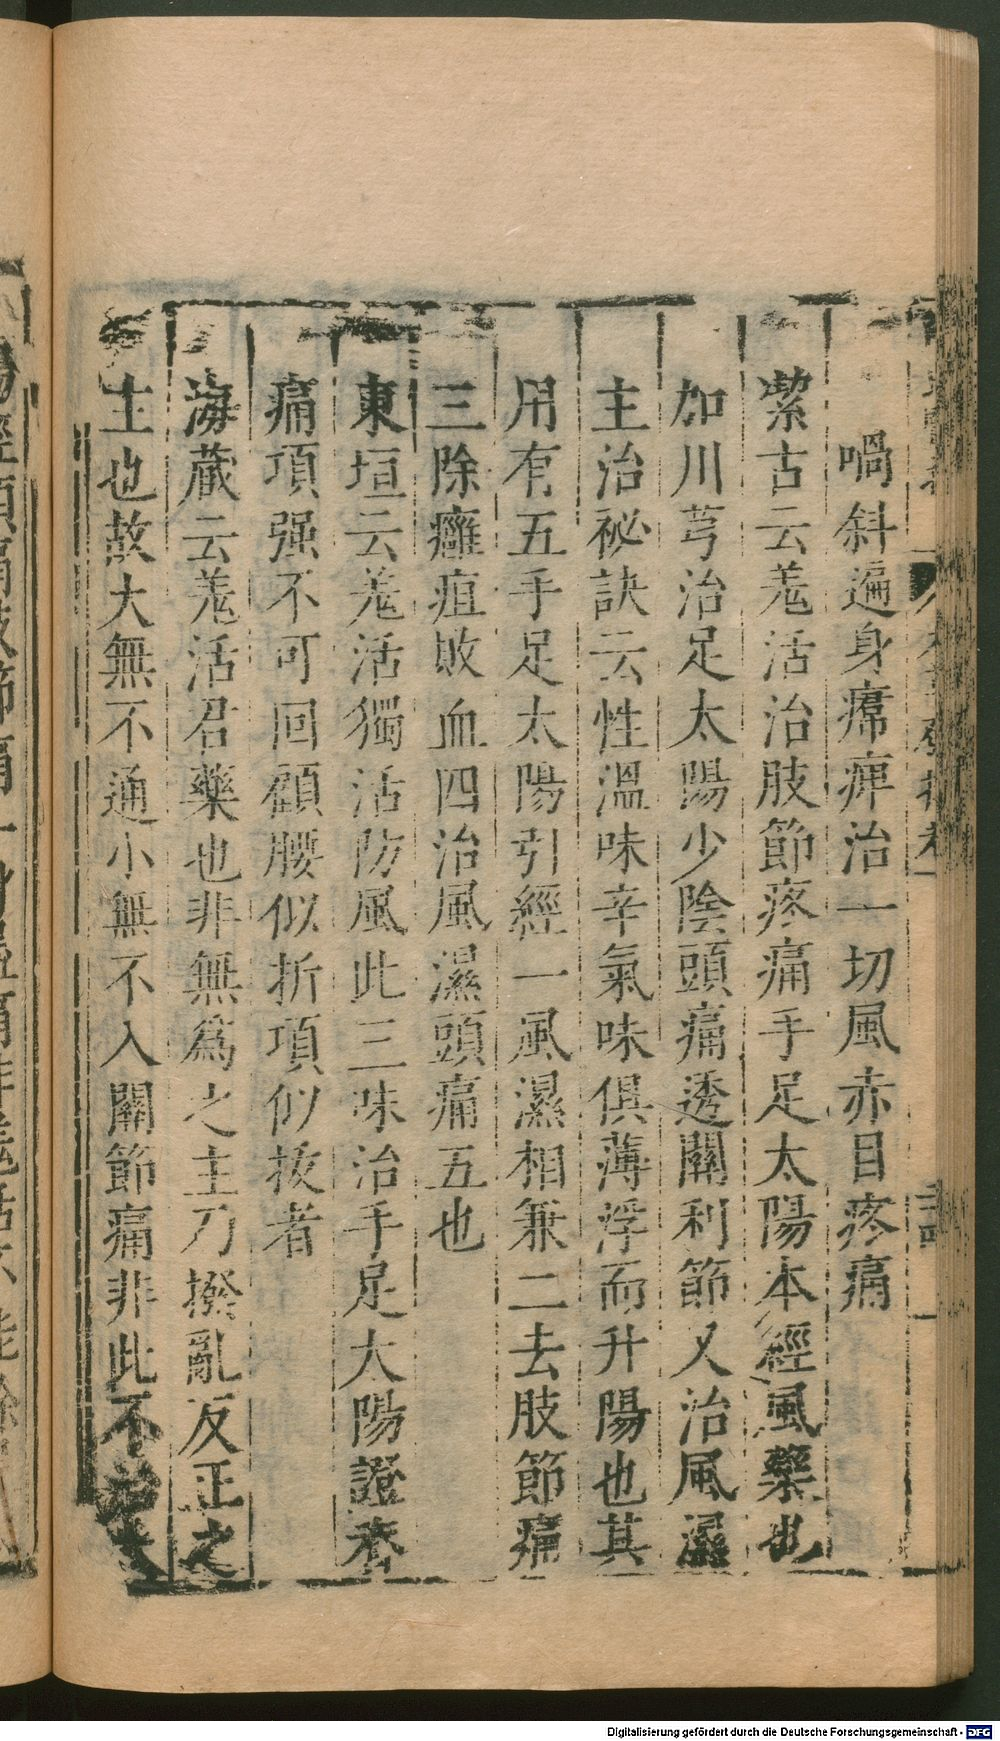 喎斜遍身㿏痹治一切風赤目疼痛
紫古云羗活治肢節疼痛手足太陽本經風藥也
加川芎治足太陽少陰頭痛透關利節又治風濕
主治祕訣云性溫味辛氣味俱薄浮而升陽也其
用有五手足太陽引經一風濕相兼二去肢節痛
三除癰疽敗血四治風濕頭痛五也
東垣云羗活獨活防風此三味治手足太陽證脊
痛項强不可回顧腰似折項似拔者
海藏云羗活君藥也非無爲之主乃撥亂反正之
主也故大無不通小無不入關節痛非此不
Digitalisierung gefördert durch die Deutsche Forschungsgemeinschaft - DFG